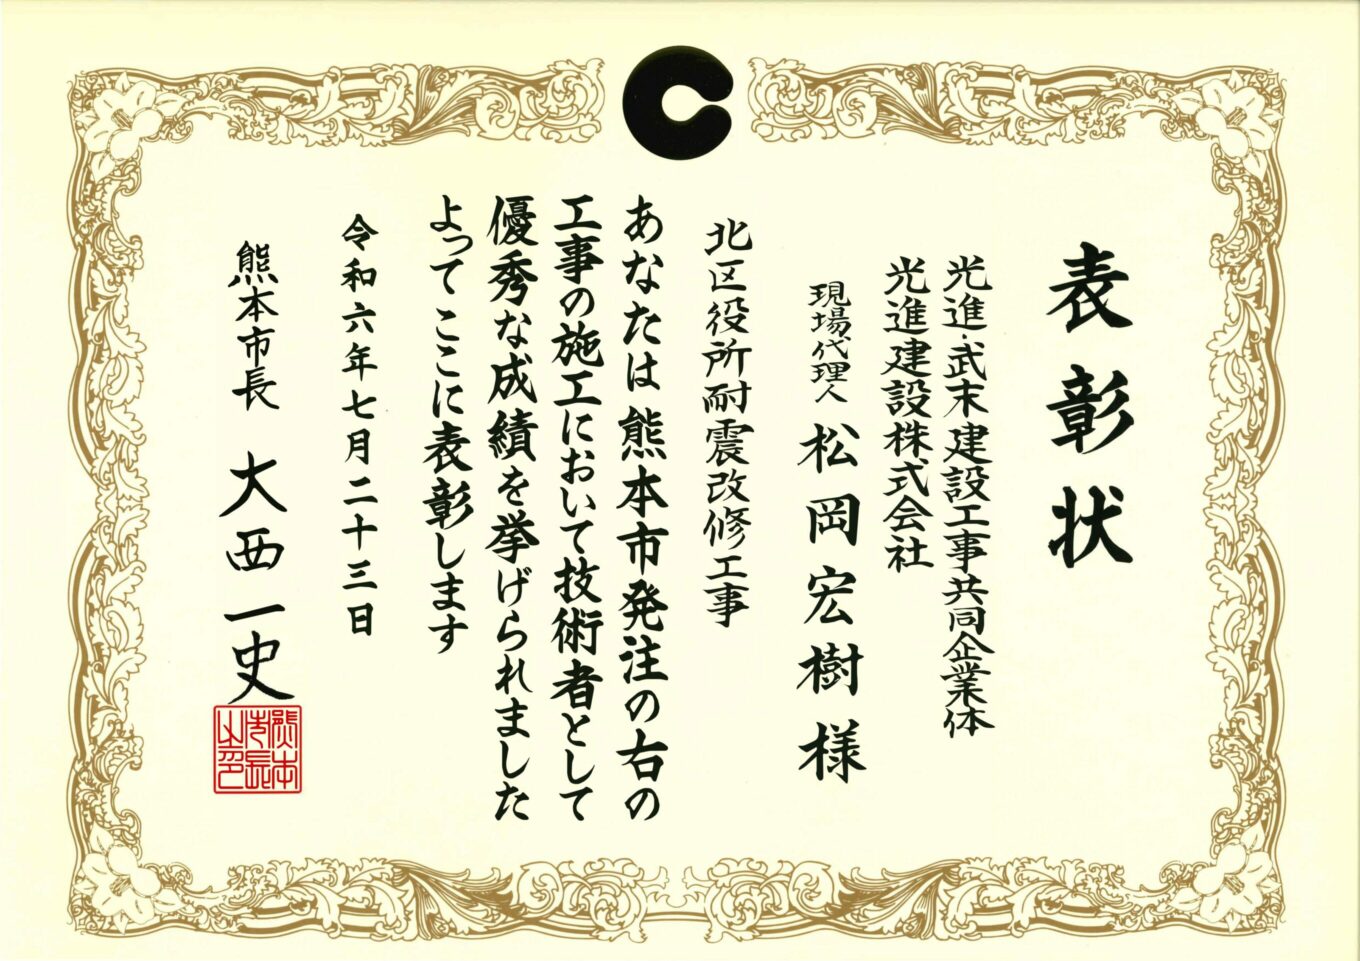 表彰状
光進・武末建設工事共同企業体
光進建設株式会社
現場代理人 松岡宏樹様
北区役所耐震改修工事
あなたは熊本市発注の右の
工事の施工において技術者として
優秀な成績を挙げられました
よってここに表彰します
令和六年七月二十三日
熊本市長 大西一史
熊本
市長
之印